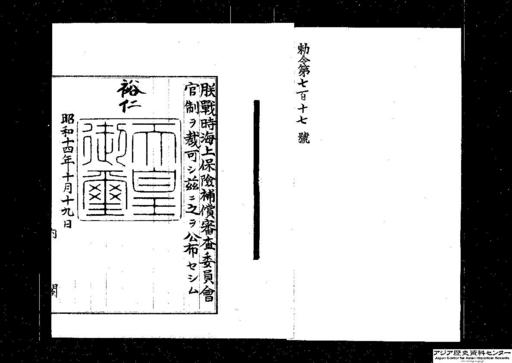 勅令第七百十七號
朕戰時海上保險補償審査委員會
官制ヲ裁可シ茲ニ之ヲ公布セシム
裕仁
天皇
御璽
昭和十四年十月十九日
内閣
アジア歴史資料センター
Japan Center for Asian Historical Records